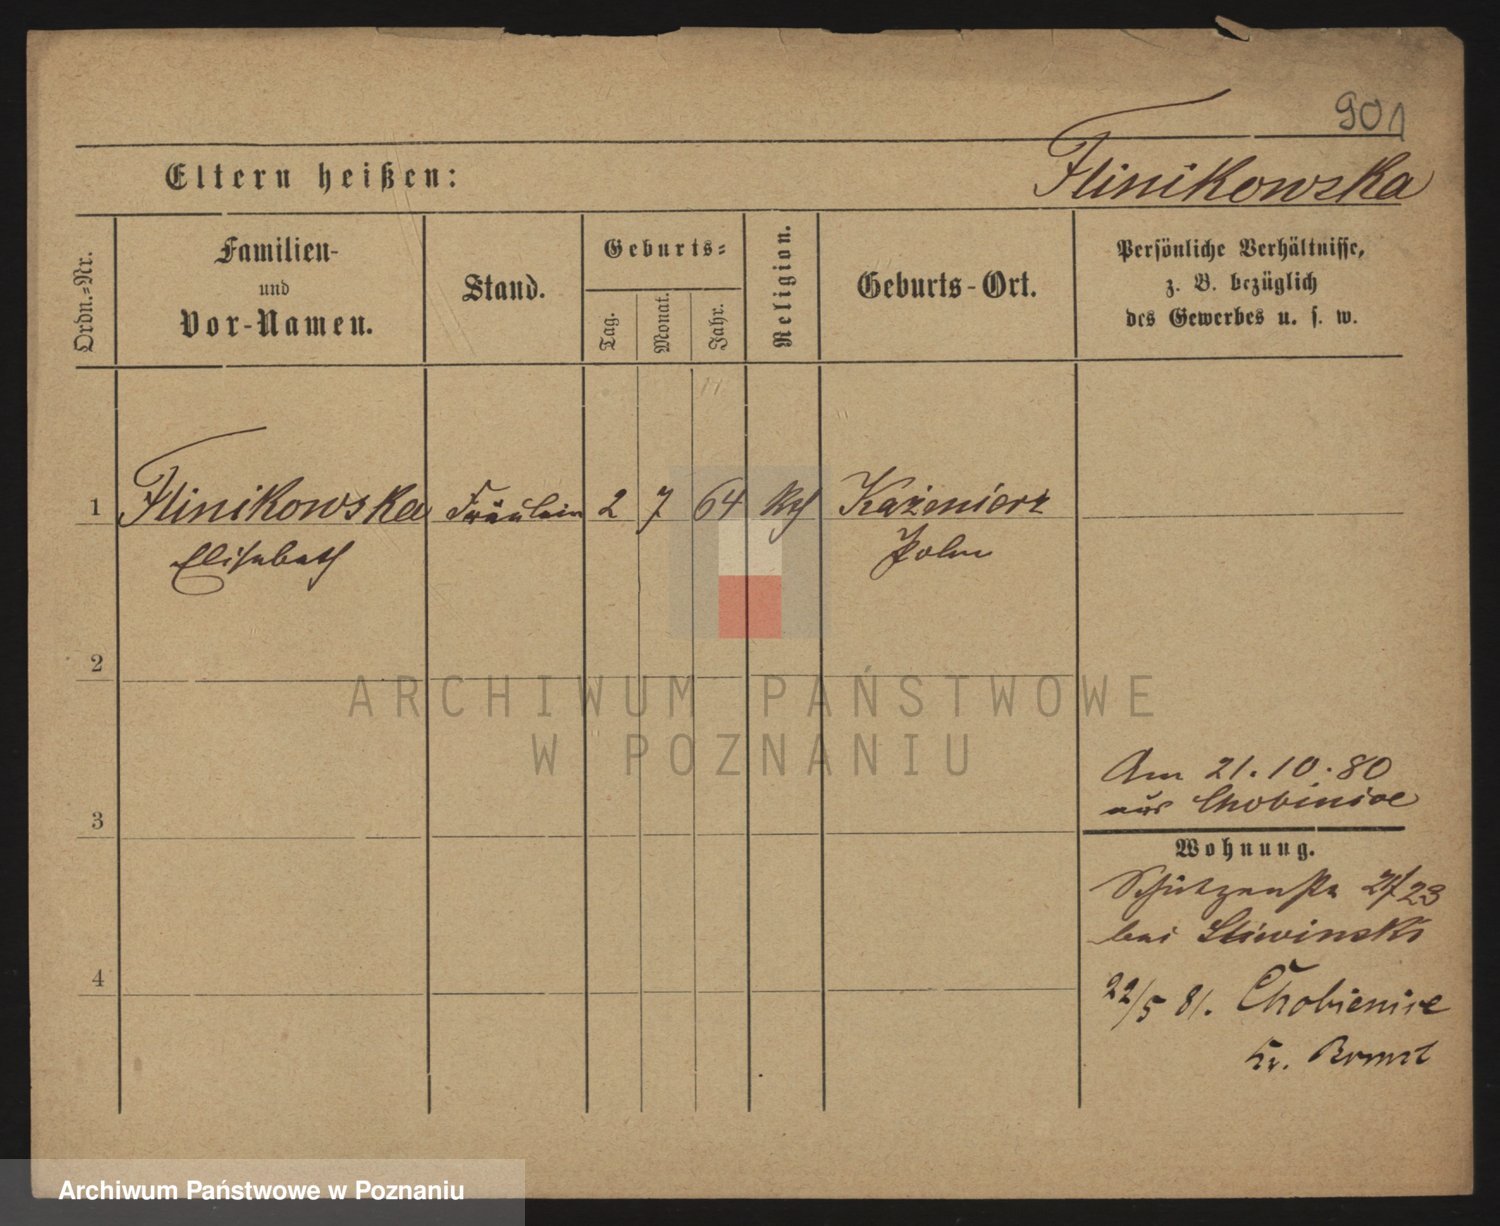 901
Eltern heißen:
Flinikowska
Ordn.-Nr.
Familien-
und
Vor-Namen.
Stand.
Geburts-
Tag.
Monat.
Jahr.
Religion.
Geburts-Ort.
Persönliche Verhältnisse,
z. B. bezüglich
des Gewerbes u. s. w.
1
Flinikowska
Elisabeth
Fräulein
2
7
64
Kaźmierz
Polen
2
ARCHIWUM PAŃSTWOWE
W POZNANIU
3
Am 21.10.80
aus Chobinice
Wohnung.
Schützenstr 23
bei Sliwinski
4
22/5 81. Chobienice
Kr. Bomst
Archiwum Państwowe w Poznaniu